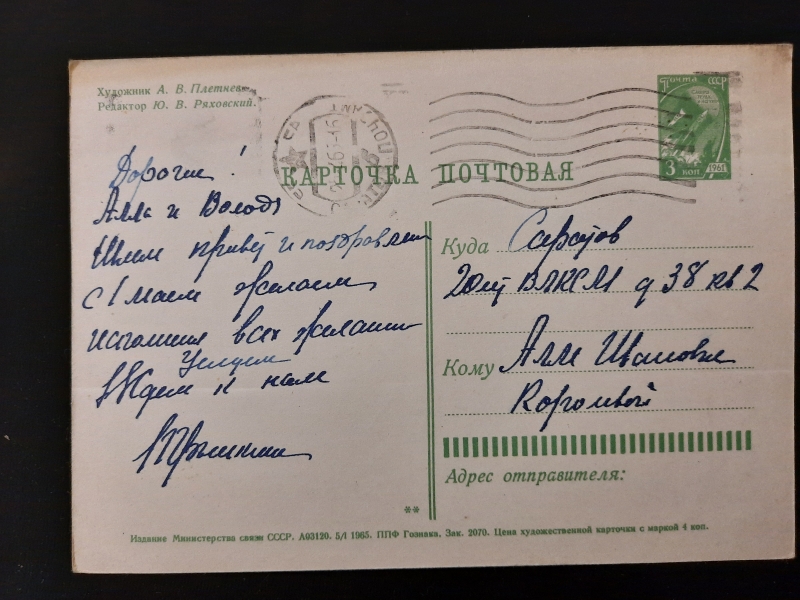 Художник А. В. Плетнев
Редактор Ю. В. Ряховский.
Почта СССР
3 коп 1961
КАРТОЧКА ПОЧТОВАЯ
Дорогие!
Алла и Володя
Шлем привет и поздравляем
с 1 маем желаем
исполнения всех желании
Ждем к нам
Куда Саратов
20 лет ВЛКСМ д 38 кв 2
Кому Алле Ивановне
Королевой
Адрес отправителя:
**
Издание Министерства связи СССР. А03120. 5/I 1965. ППФ Гознака. Зак. 2070. Цена художественной карточки с маркой 4 коп.